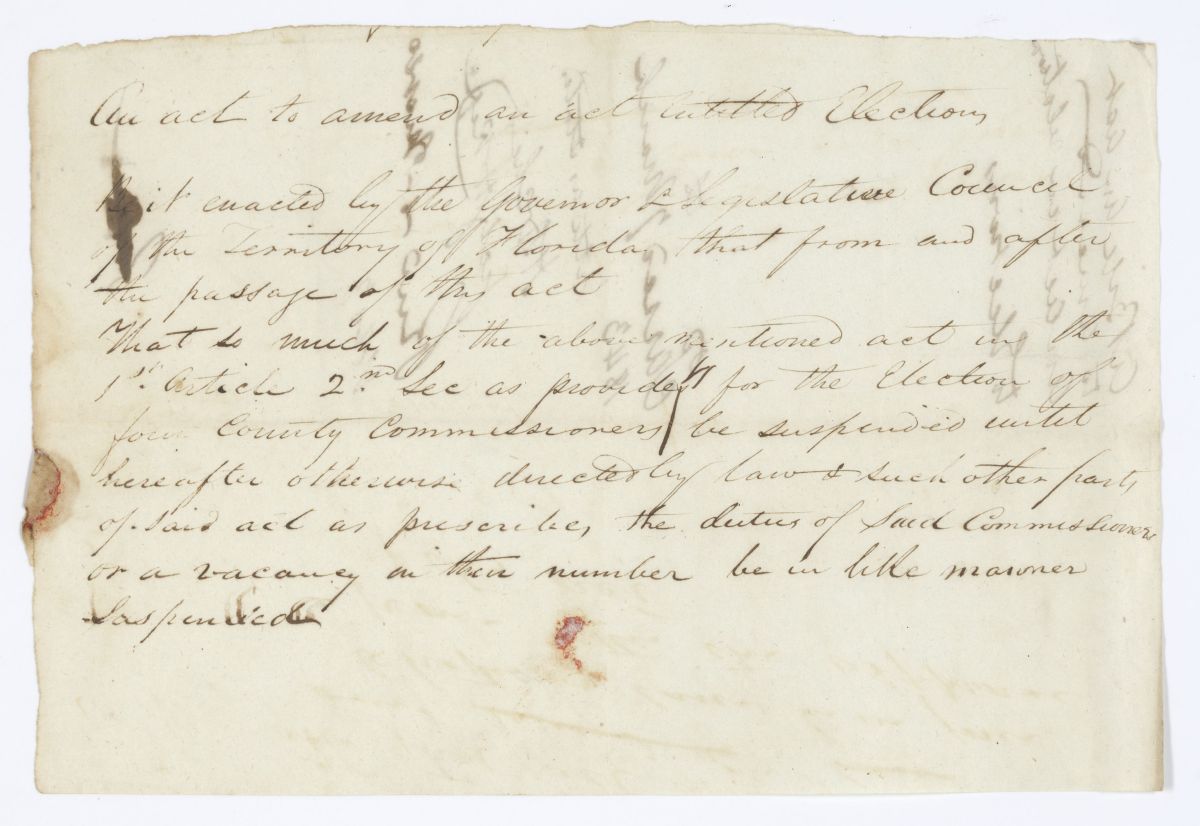 An act to amend an act entitled Elections
Be it enacted by the Governor & Legislative Council
of the Territory of Florida that from and after
the passage of this act
That so much of the above mentioned act in the
1st. Article 2nd. Sec as provides for the Election of
four County Commissioners be suspended until
hereafter otherwise directed by law & such other parts
of said act as prescribes the duties of Said Commissioners
or a vacancy in their number be in like manner
Suspended